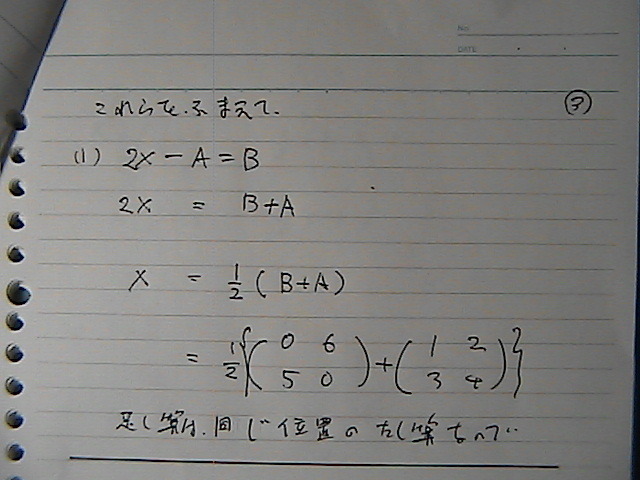 No.
DATE
これらを、ふまえて、 ③
(1) 2X - A = B
2X = B+A
X = 1/2 ( B+A )
= 1/2 { ( 0 6 ) + ( 1 2 ) }
( 5 0 ) ( 3 4 )
足し算は、同じ位置のたし算なので